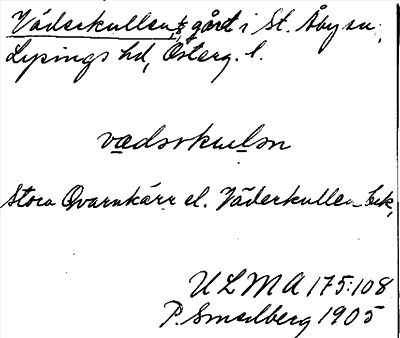 Väderkullen, gård i St. Åby sn,
Lysings hd, Österg. l.
vædərkuɫən
Stora Qvarnkärr el. Väderkullen
ULMA 175:108
P. Smedberg 1905